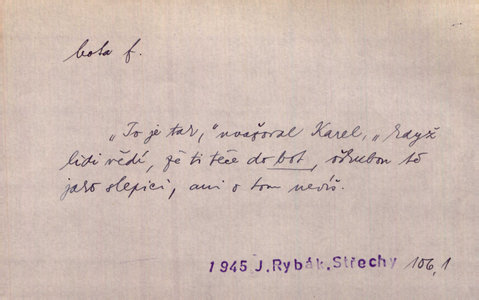 bota f.
„To je tak,“ uvažoval Karel, „když
lidi vědí, že ti teče do bot, oškubou tě
jako slepici, ani o tom nevíš.
1945 J. Rybák, Střechy 106,1